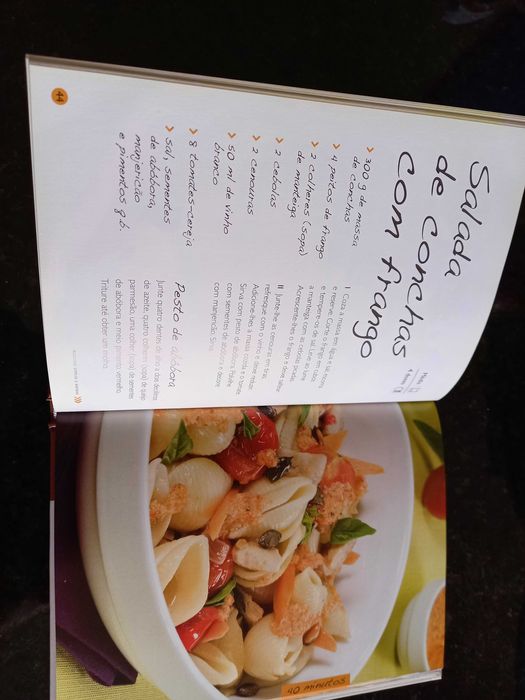 Salada
de conchas
com frango
Média
4 doses
> 300 g de massa
de conchas
> 4 peitos de frango
> 2 colheres (sopa)
de manteiga
> 2 cebolas
> 2 cenouras
> 50 ml de vinho
branco
> 8 tomates-cereja
> sal, sementes
de abóbora,
manjericão
e pimentos q.b.
I Coza a massa em água e sal, escorra
e reserve. Corte o frango em tiras
e tempere-os de sal. Leve ao lume
a manteiga com as cebolas picadas.
Acrescente-lhes o frango e deixe saltear.
II Junte-lhe as cenouras em tiras,
refresque com o vinho e deixe
Adicione-lhes a massa cozida e os tomates.
Sirva com pesto de abóbora, polvilhe
com sementes de abóbora e decore
com manjericão. Sirva
Pesto de abóbora
Junte quatro dentes de alho a dois decilitros
de azeite, quatro colheres (sopa) de queijo
parmesão, uma colher (sopa) de sementes
de abóbora e meio pimento vermelho.
Triture até obter um molho.
44
40 minutos